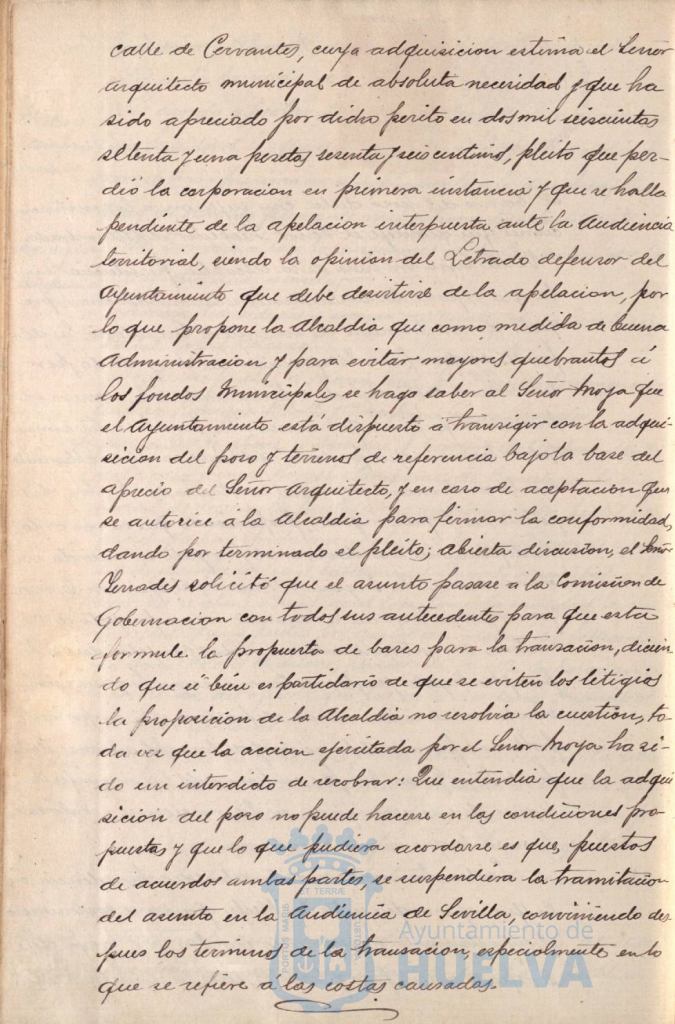 calle de Cervantes, cuya adquisicion estima el Señor
arquitecto municipal de absoluta necesidad y que ha
sido apreciado por dicho perito en dos mil seiscientas
setenta y una pesetas sesenta y seis centimos, pleito que per-
dió la corporacion en primera instancia y que se halla
pendiente de la apelacion interpuesta ante la Audiencia
territorial, siendo la opinion del Letrado defensor del
Ayuntamiento que debe desistirse de la apelacion, por
lo que propone la Alcaldia que como medida de buena
Administracion y para evitar mayores quebrantos á
los fondos Municipales se haga saber al Señor Moya que
el Ayuntamiento está dispuesto á transigir con la adqui-
sicion del pozo y terrenos de referencia bajo la base del
aprecio del Señor Arquitecto, y en caso de aceptacion que
se autorice á la Alcaldia para firmar la conformidad,
dando por terminado el pleito; Abierta discusion, el Señor
solicitó que el asunto pasase á la Comision de
Gobernacion con todos sus antecedentes para que esta
formule la propuesta de bases para la transacion, dicien-
do que si bien es partidario de que se eviten los litigios
la proposicion de la Alcaldia no resolvia la cuestion, to-
da vez que la accion ejercitada por el Señor Moya ha si-
do un interdicto de recobrar: Que entendia que la adqui-
sicion del pozo no puede hacerse en las condiciones pro-
puestas y que lo que pudiera acordarse es que, puestos
de acuerdos ambas partes, se suspendiera la tramitacion
del asunto en la Audiencia de Sevilla, conviniendo des-
pues los terminos de la transacion, especialmente en lo
que se refiere á las costas causadas.
Ayuntamiento de
HUELVA